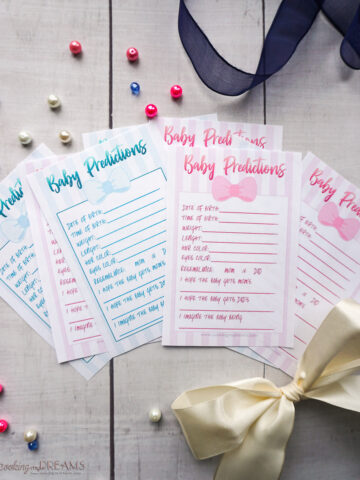 Baby Predictions
DATE OF BIRTH:
TIME OF BIRTH:
WEIGHT:
LENGTH:
HAIR COLOR:
EYES COLOR:
RESEMBLANCE: MOM
I HOPE THE BABY GETS MOM'S
I HOPE
I IMAGINE THE BABY
Baby Predictions
Baby Predictions
DATE OF BIRTH:
TIME OF BIRTH:
WEIGHT:
LENGTH:
HAIR COLOR:
EYES COLOR:
RESEMBLANCE: MOM DAD
I HOPE THE BABY GETS MOM'S
I HOPE THE BABY GETS DAD'S
I IMAGINE THE BABY BEING
I HOPE
I HOPE
I IMAGINE
cooking my DREAMS